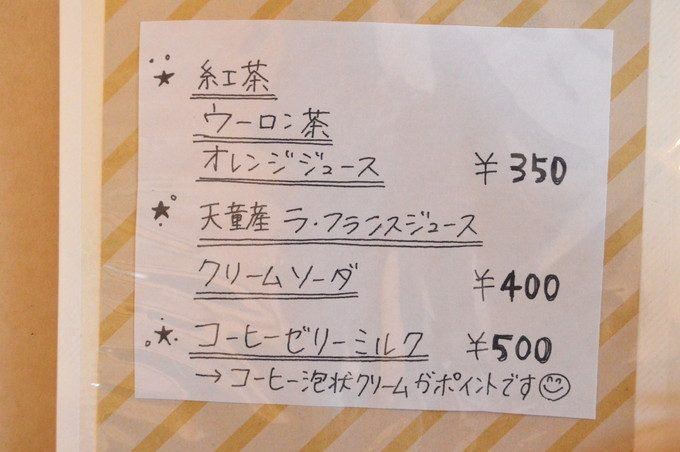 ★ 紅茶
ウーロン茶
オレンジジュース ¥350
★ 天童産 ラ・フランスジュース
クリームソーダ ¥400
★ コーヒーゼリーミルク ¥500
→コーヒー泡状クリームがポイントです☺